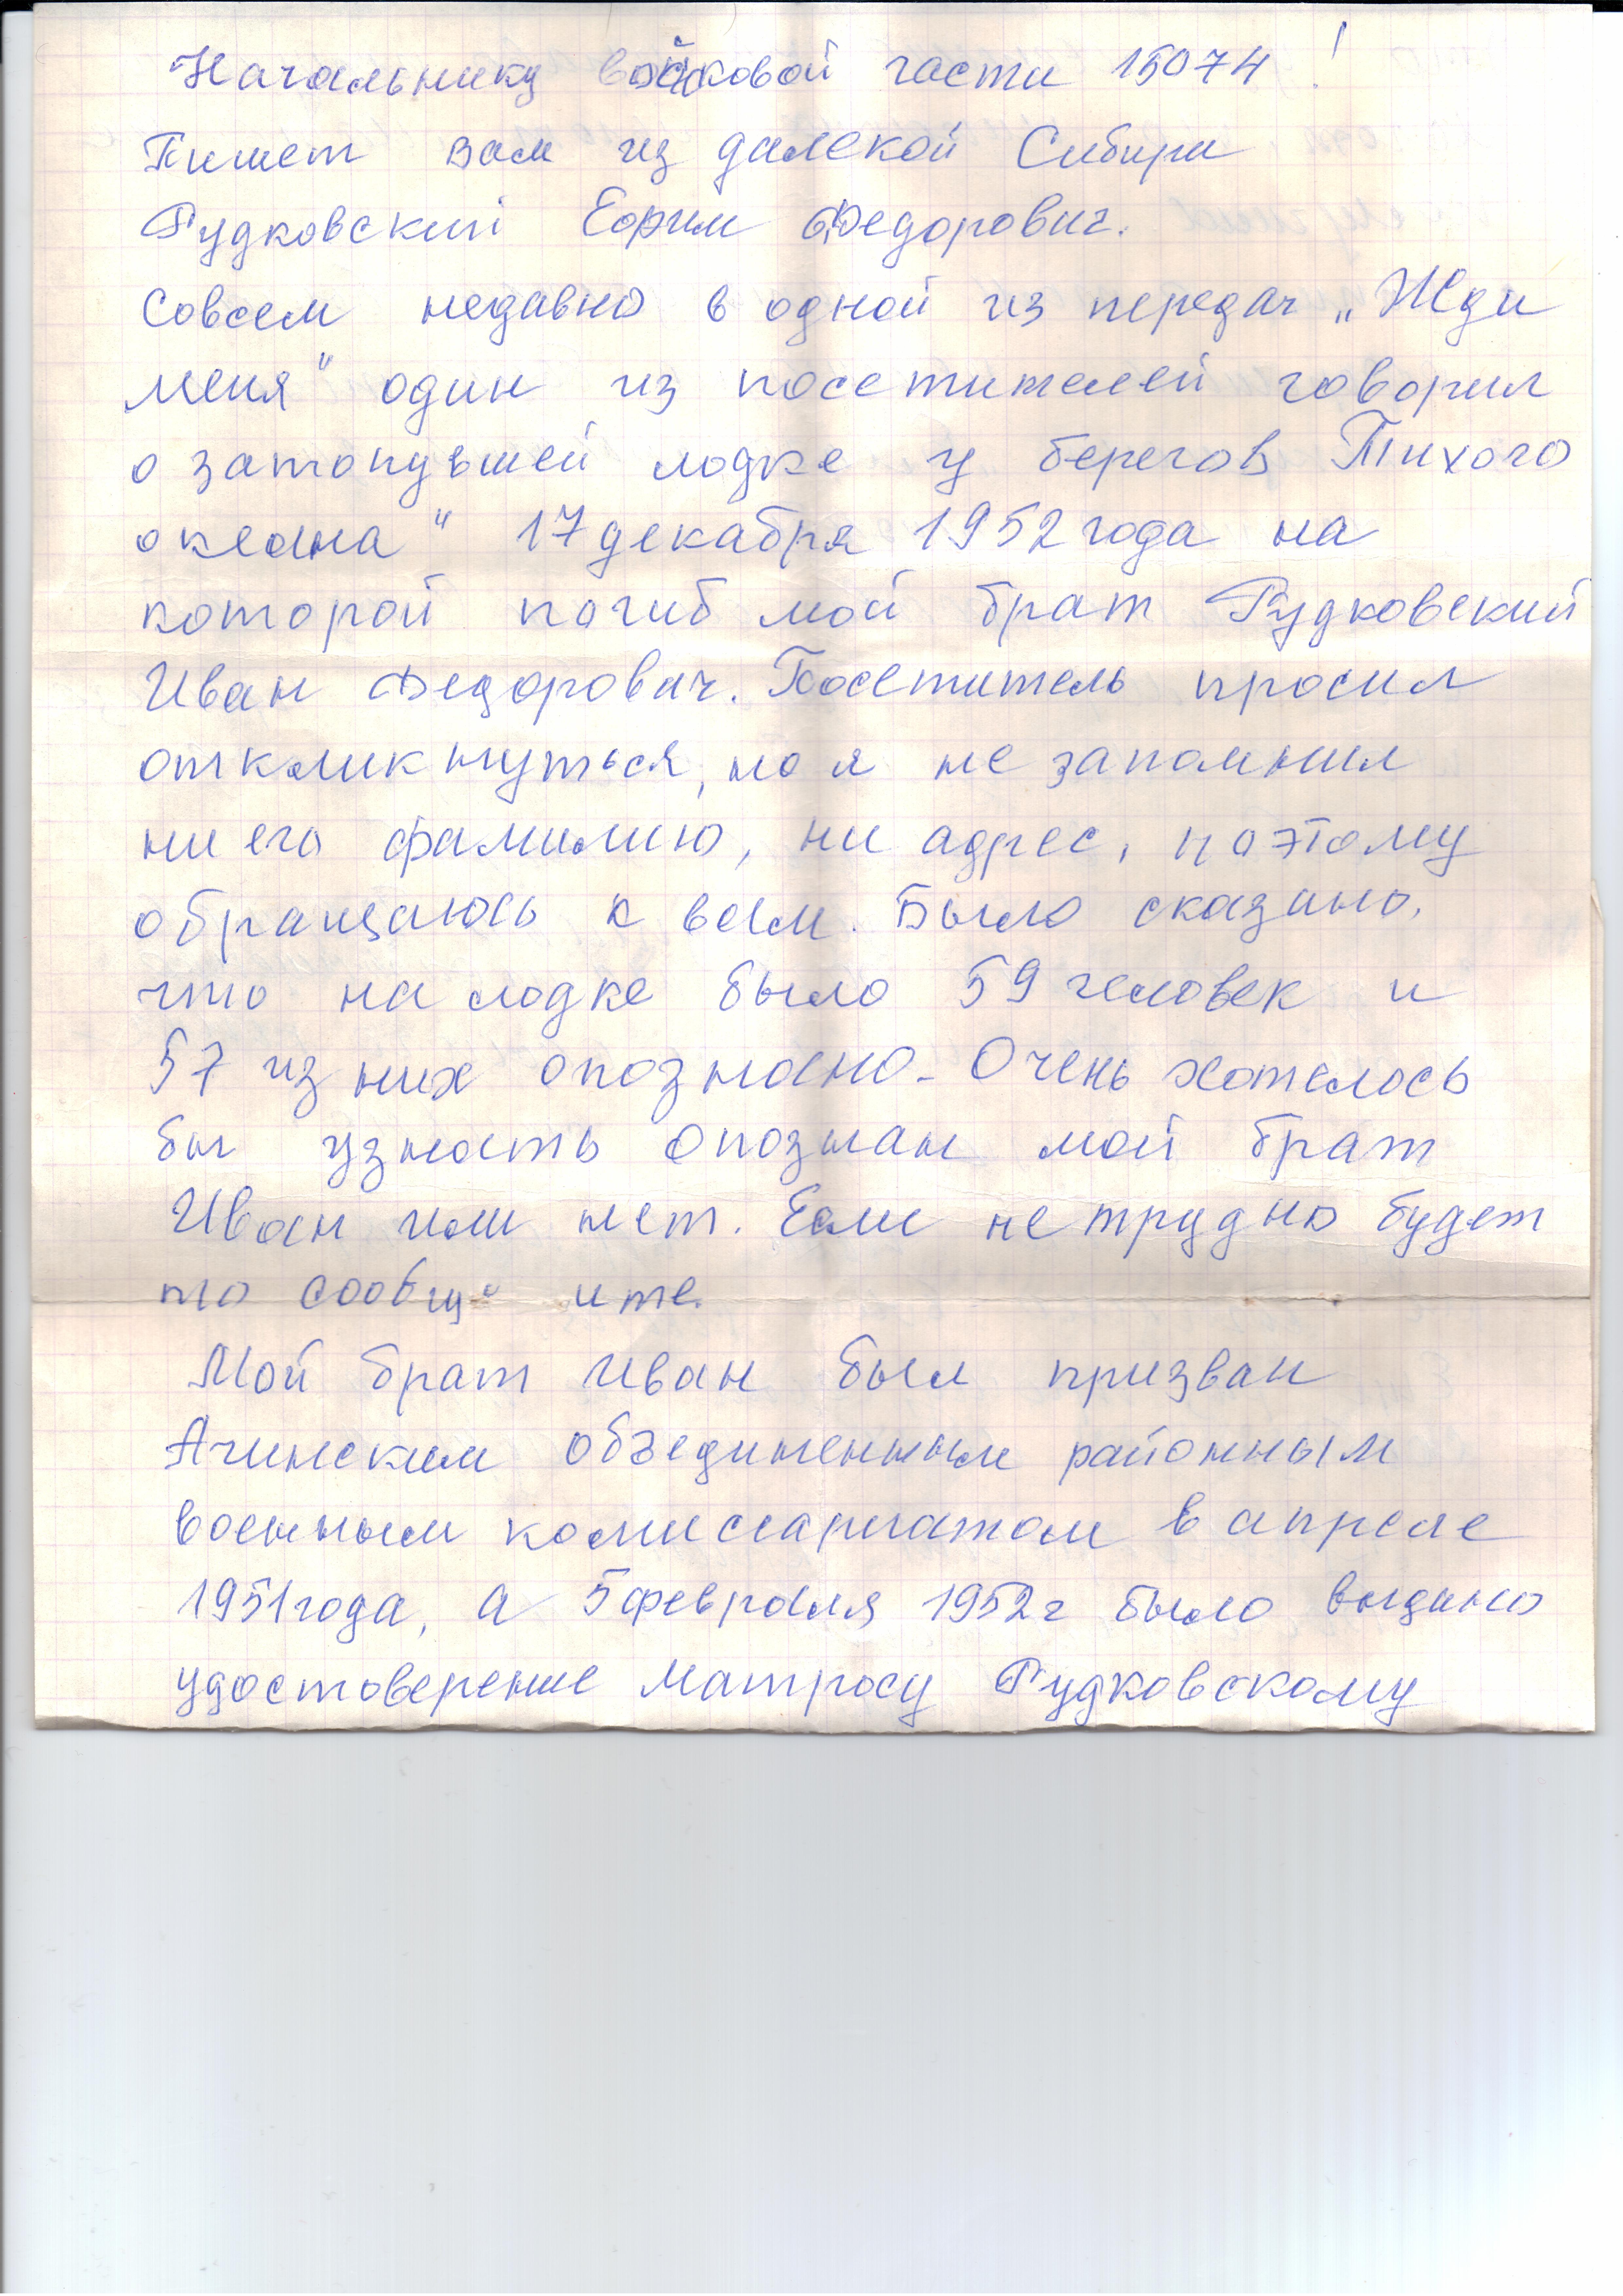 Начальнику войсковой части 15074!
Пишет вам из далекой Сибири
Рудковский Ефим Федорович.
Совсем недавно в одной из передач „Жди
меня" один из посетителей говорил
о затонувшей лодке у берегов Тихого
океана" 17 декабря 1952 года на
которой погиб мой брат Рудковский
Иван Федорович. Посетитель просил
откликнуться, но я не запомнил
ни его фамилию, ни адрес, поэтому
обращаюсь к вам. Было сказано,
что на лодке было 59 человек и
57 из них опознано. Очень хотелось
бы узнать опознан мой брат
Иван или нет. Если не трудно будет
то сообщ- ите.
Мой брат Иван был призван
Ачинским объединенным районным
военным комиссариатом в апреле
1951 года, а 5 февраля 1952 г было выдано
удостоверение матросу Рудковскому